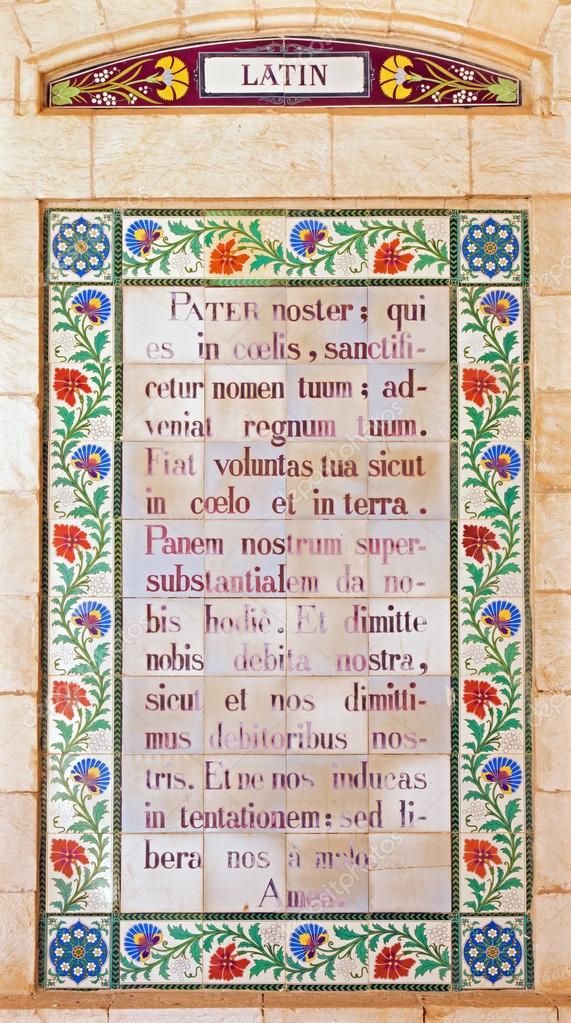 LATIN
PATER noster; qui
es in cœlis, sanctifi-
cetur nomen tuum; ad-
veniat regnum tuum.
Fiat voluntas tua sicut
in cœlo et in terra.
Panem nostrum super-
substantialem da no-
bis hodiè. Et dimitte
nobis debita nostra,
sicut et nos dimitti-
mus debitoribus nos-
tris. Et ne nos inducas
in tentationem; sed li-
bera nos à malo.
Amen.